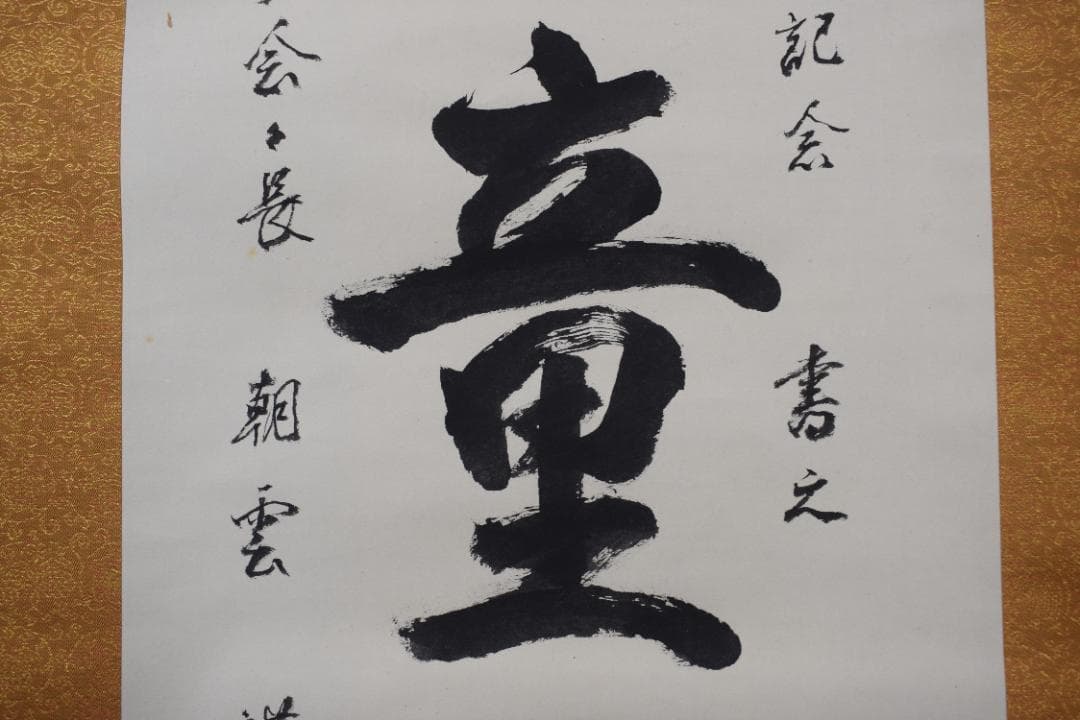 記念 書之
童
会々長 朝雲